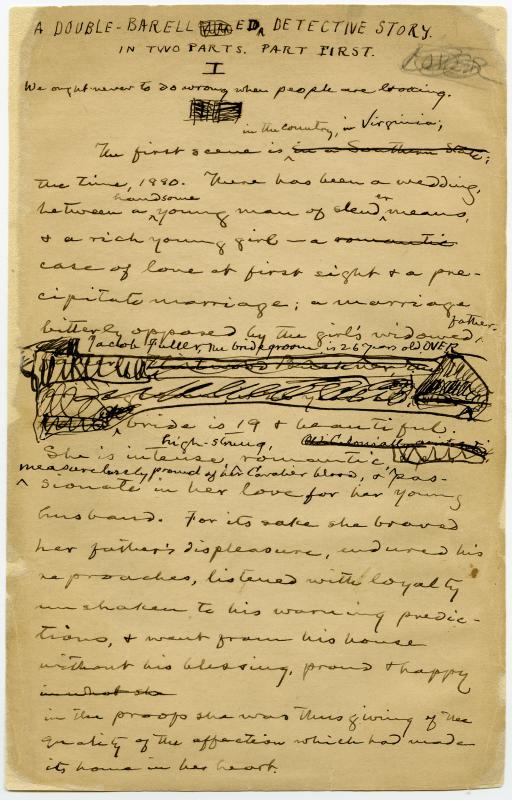 A DOUBLE-BARELLED DETECTIVE STORY.
IN TWO PARTS. PART FIRST.
OVER
I
We ought never to do wrong when people are looking.
in the country, in Virginia;
The first scene is in a Southern State;
the time, 1880. There has been a wedding,
handsome er
between a young man of slend means,
& a rich young girl — a romantic
case of love at first sight & a pre-
cipitate marriage; a marriage
bitterly opposed by the girl's widowed father.
Jacob Fuller, the bridegroom is 26 years old OVER
bride is 19 & beautiful.
high-strung,
She is intense, romantic,
measurelessly proud of her Cavalier blood, & pas-
sionate in her love for her young
husband. For its sake she braved
her father's displeasure, endured his
reproaches, listened with loyalty
unshaken to his warning predic-
tions, & went from his house
without his blessing, proud & happy
in what she
in the proofs she was thus giving of the
quality of the affection which had made
its home in her heart.